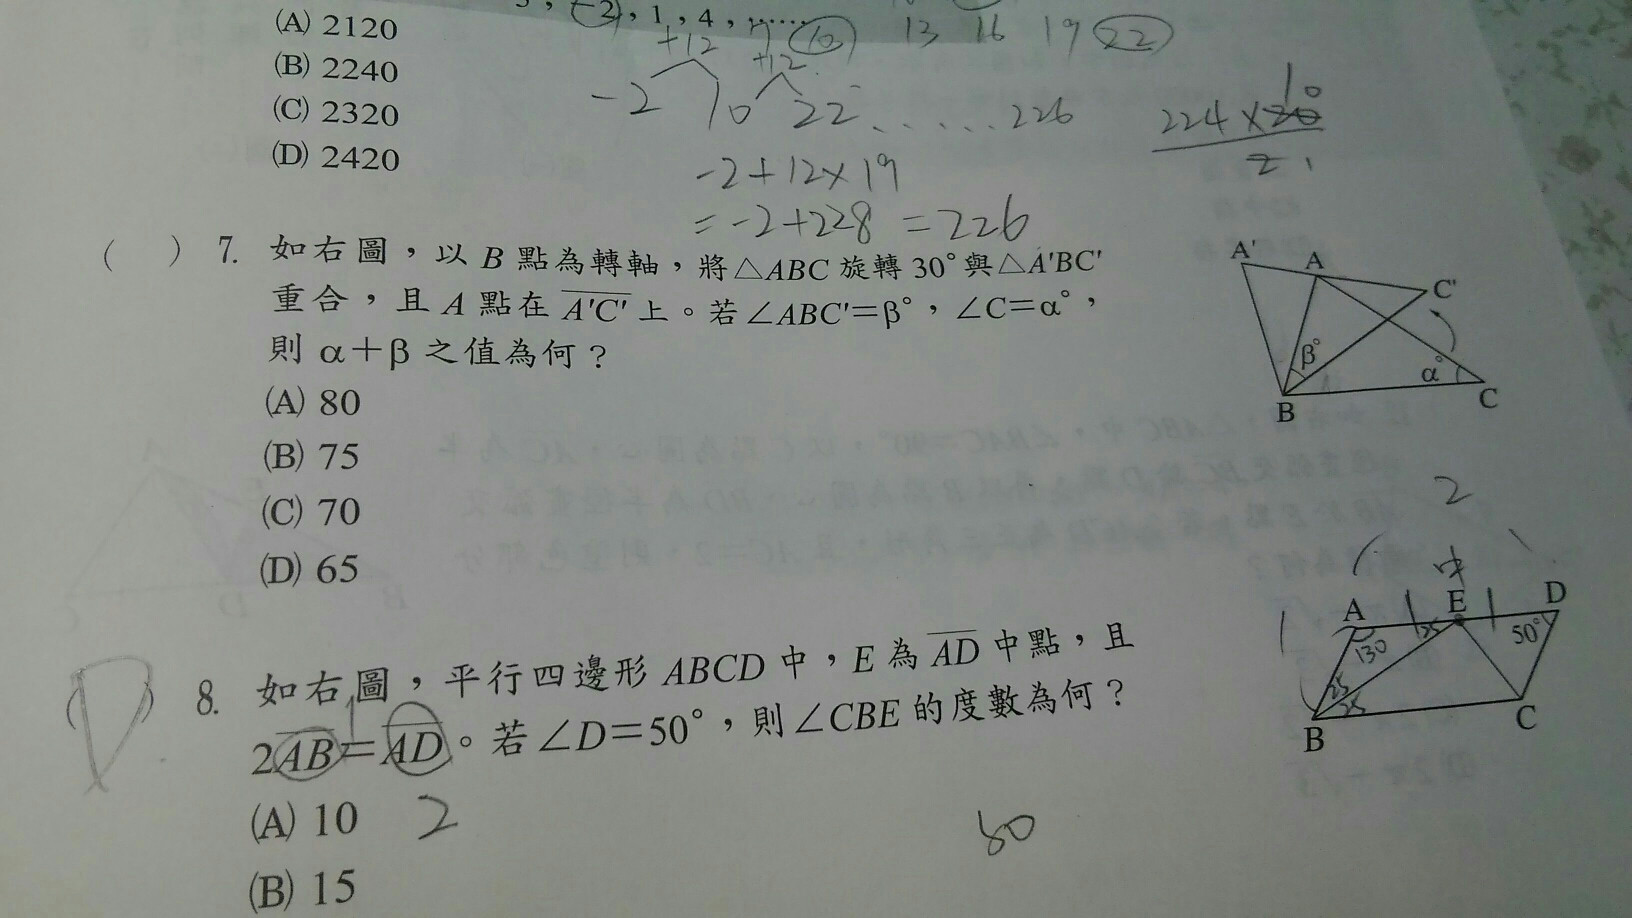 (A) 2120
(B) 2240
(C) 2320
(D) 2420
-2, 1, 4, ...... 10 13 16 19 22
+12 +12
-2 10 22 ...... 226
-2+12×19
=-2+228 =226
10
224×20
2 1
( ) 7. 如右圖，以 B 點為轉軸，將△ABC 旋轉 30°與△A'BC'
重合，且 A 點在 A'C' 上。若∠ABC'=β°，∠C=α°，
則 α+β 之值為何？
(A) 80
(B) 75
(C) 70
(D) 65
A' A C'
β° α°
B C
(D) 8. 如右圖，平行四邊形 ABCD 中，E 為 AD 中點，且
2AB=AD。若∠D=50°，則∠CBE 的度數為何？
1
(A) 10 2
(B) 15
2
中
A E D
1 130 25 50°
25
25
B C
50